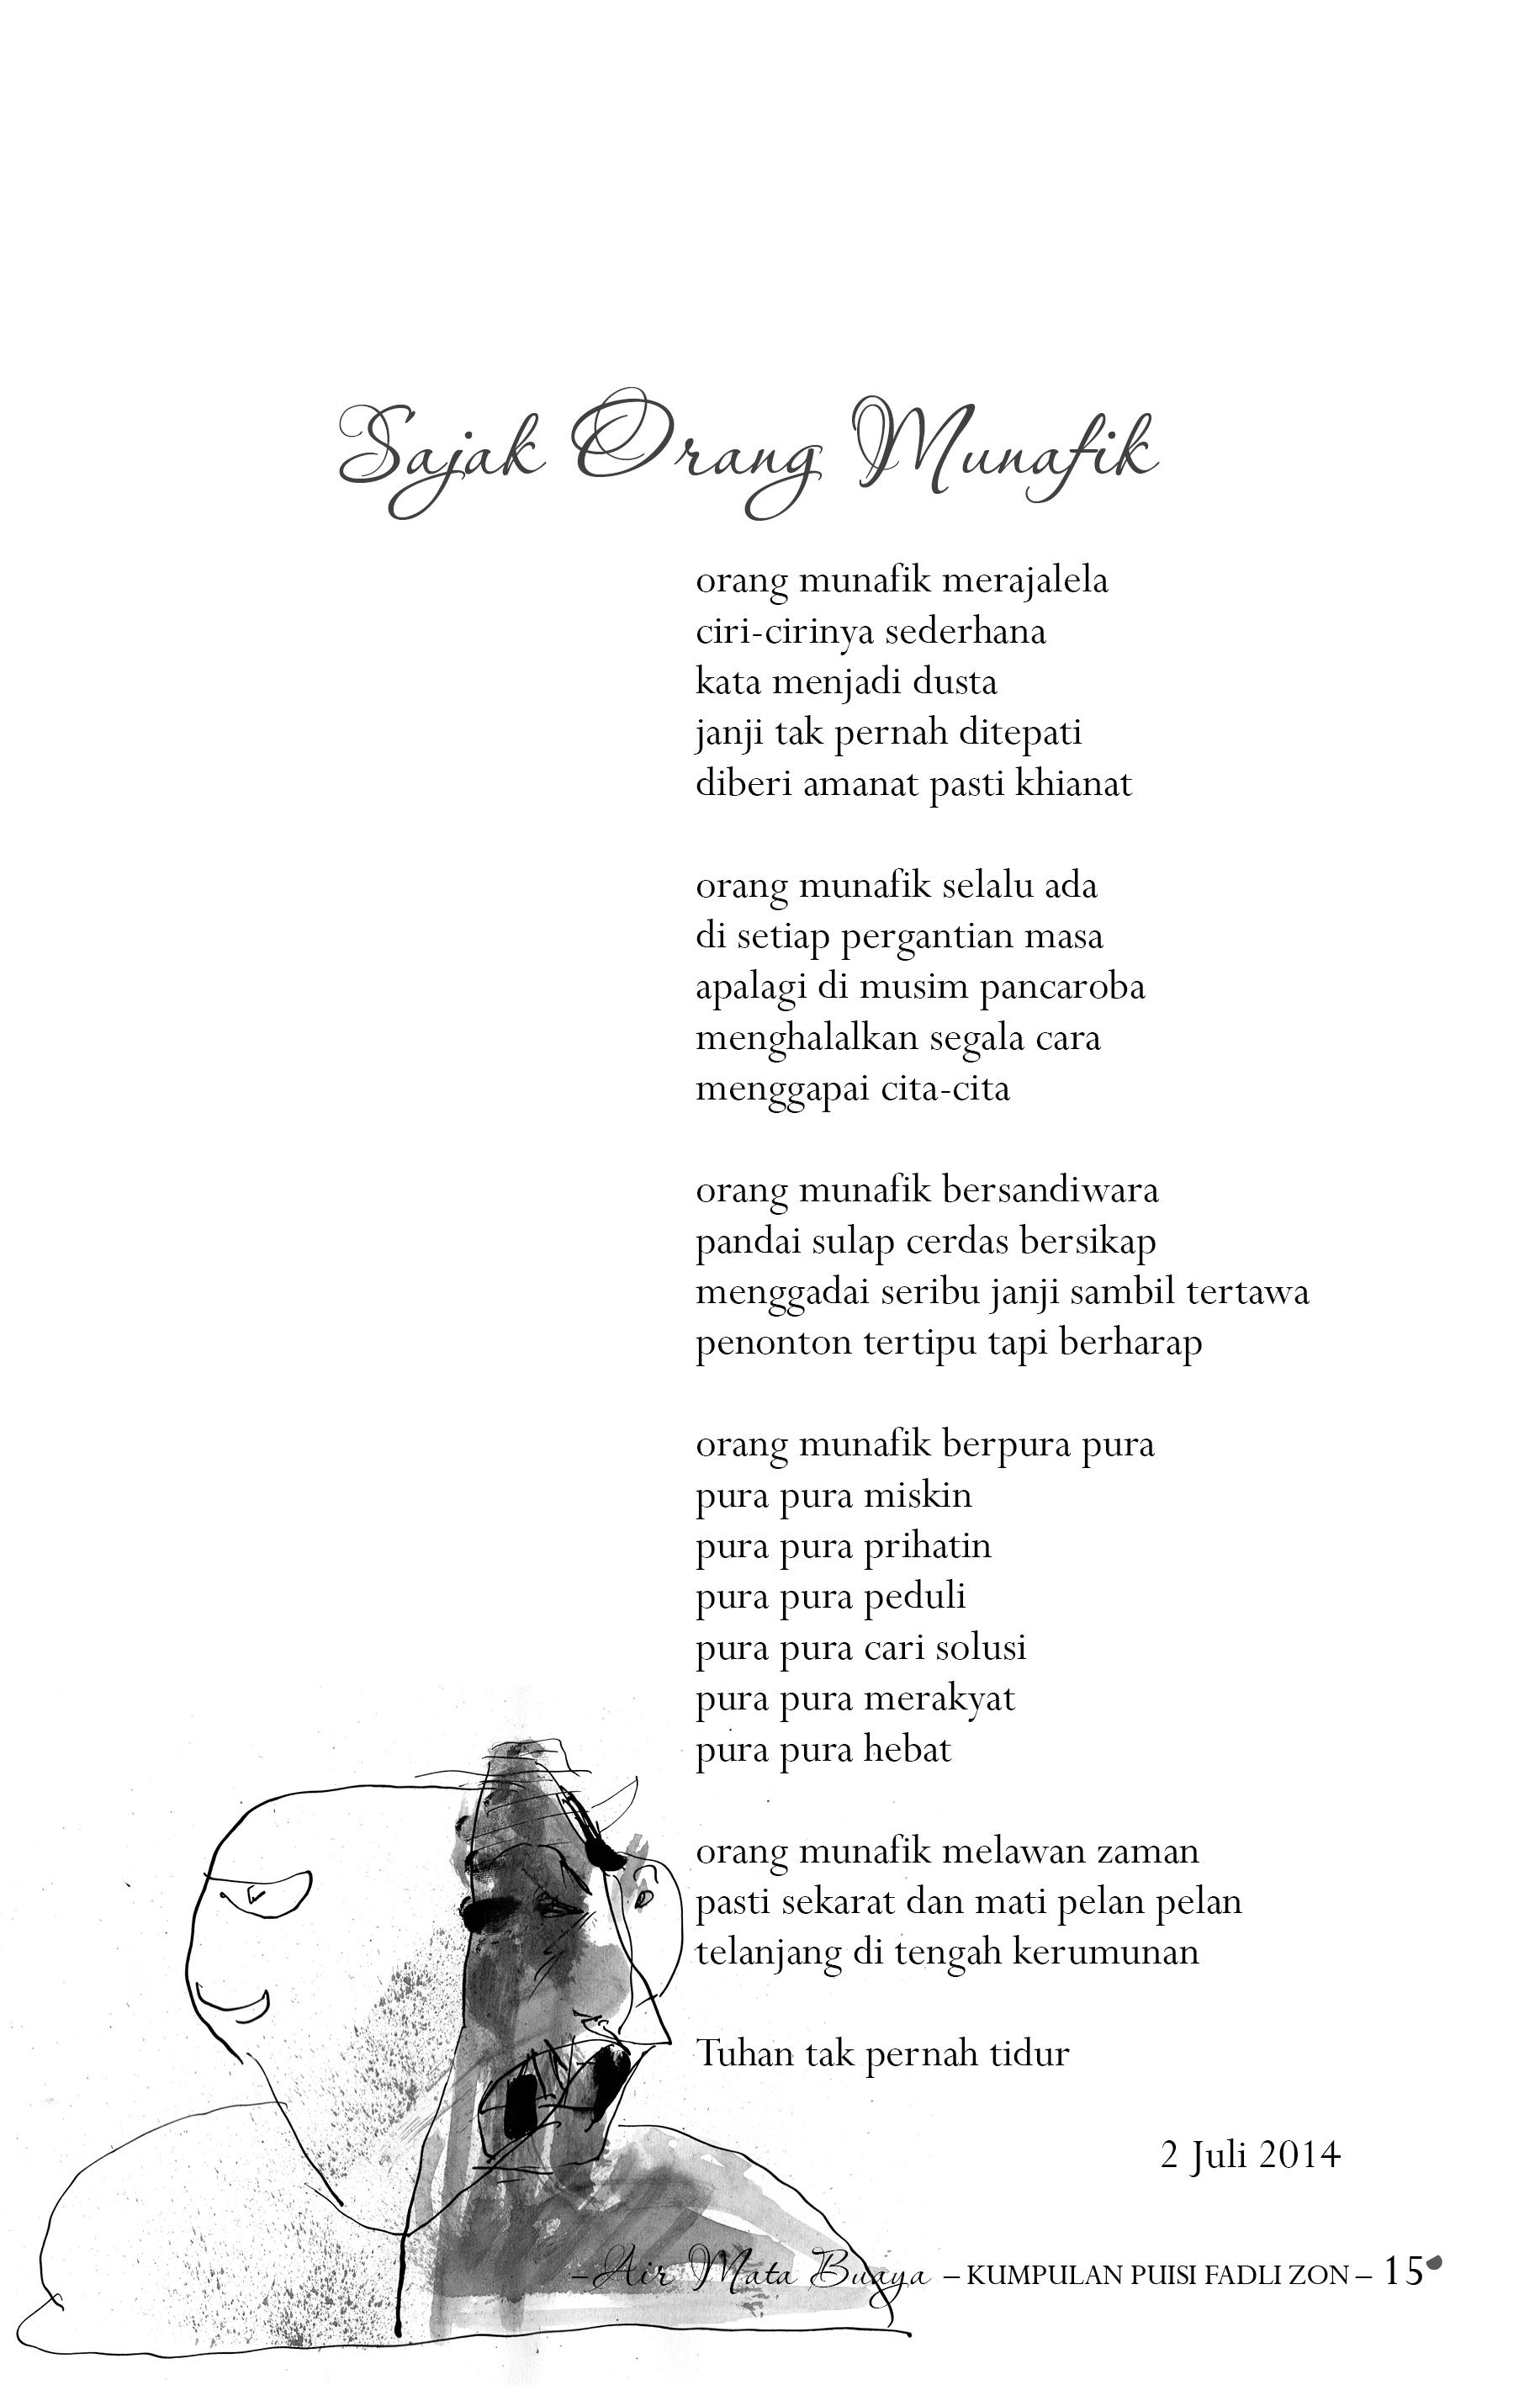 Sajak Orang Munafik
orang munafik merajalela
ciri-cirinya sederhana
kata menjadi dusta
janji tak pernah ditepati
diberi amanat pasti khianat
orang munafik selalu ada
di setiap pergantian masa
apalagi di musim pancaroba
menghalalkan segala cara
menggapai cita-cita
orang munafik bersandiwara
pandai sulap cerdas bersikap
menggadai seribu janji sambil tertawa
penonton tertipu tapi berharap
orang munafik berpura pura
pura pura miskin
pura pura prihatin
pura pura peduli
pura pura cari solusi
pura pura merakyat
pura pura hebat
orang munafik melawan zaman
pasti sekarat dan mati pelan pelan
telanjang di tengah kerumunan
Tuhan tak pernah tidur
2 Juli 2014
–Air Mata Buaya – KUMPULAN PUISI FADLI ZON – 15